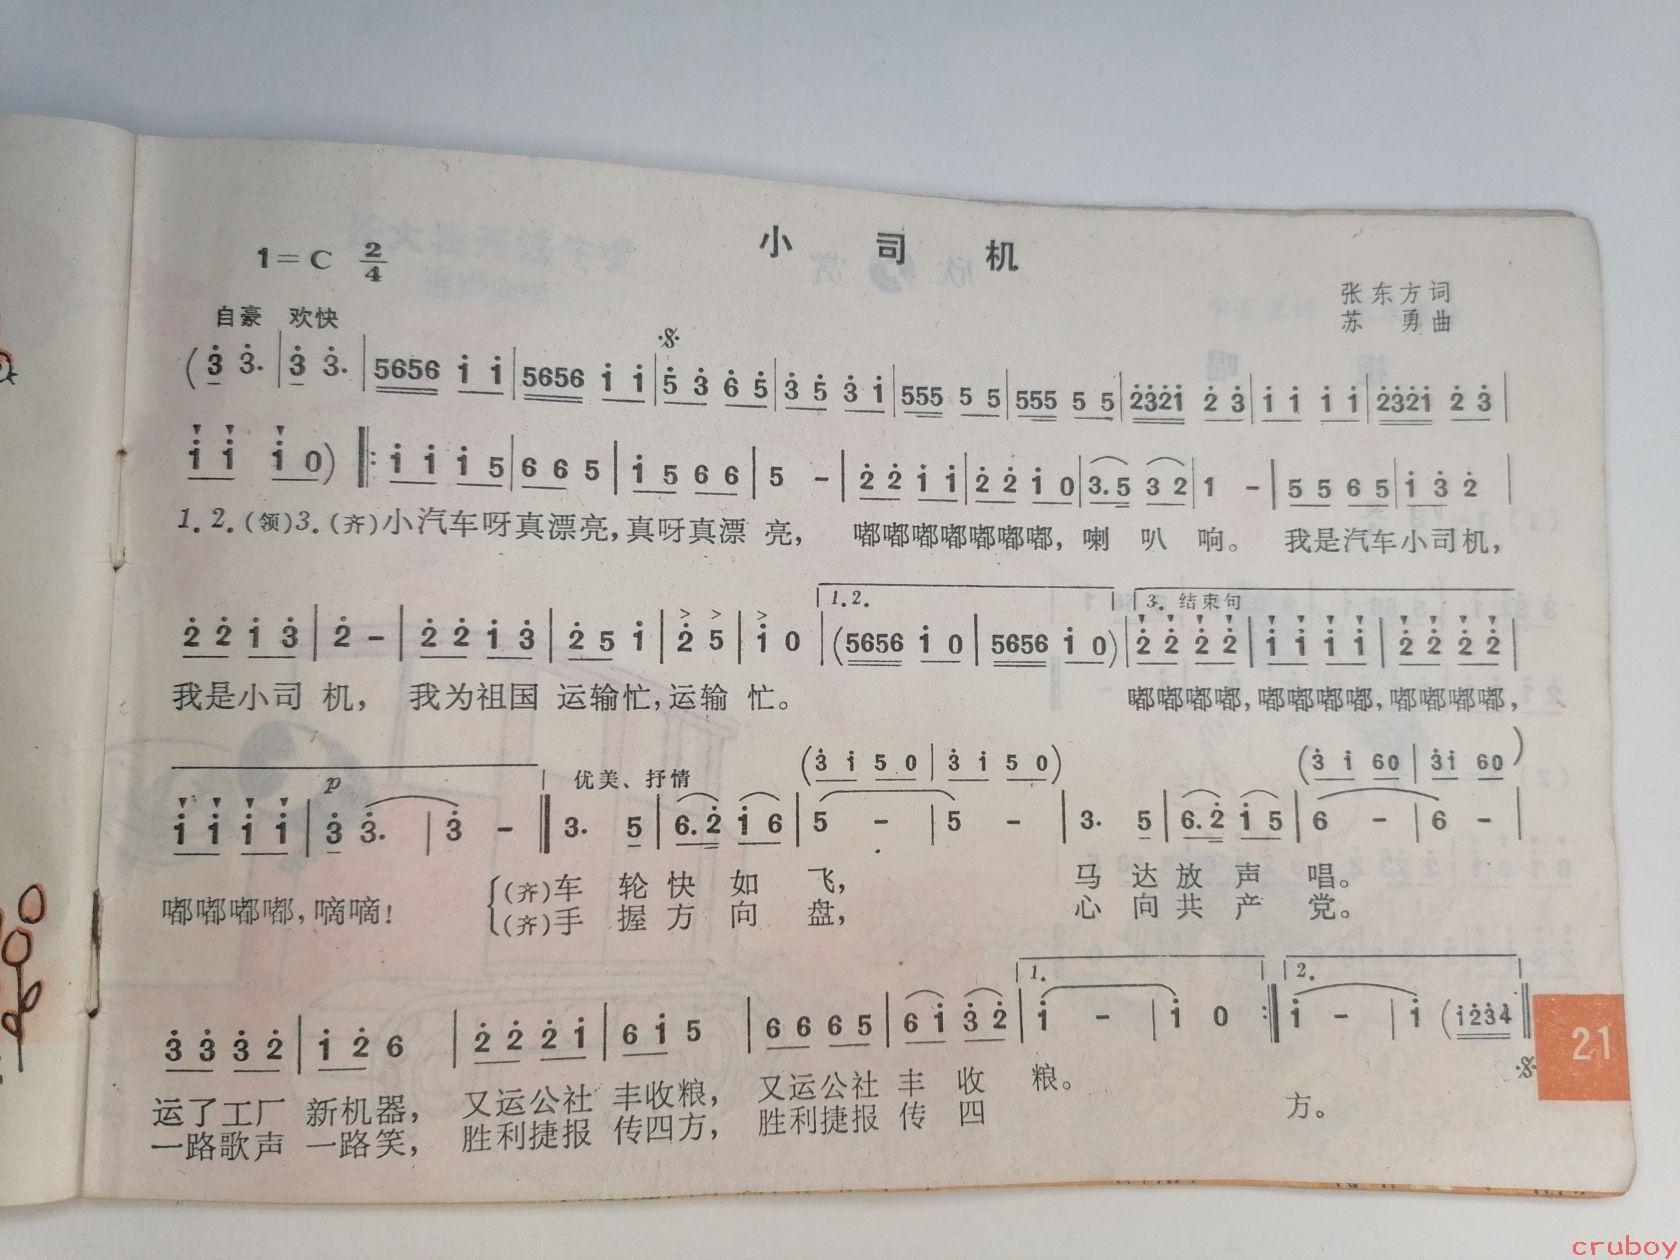 小司机
1=C 2/4
张东方词
苏勇曲
自豪 欢快
(3̇ 3̇. | 3̇ 3̇. | 5656 1̇ 1̇ | 5656 1̇ 1̇ | 5̇ 3̇ 6̇ 5̇ | 3̇ 5̇ 3̇ 1̇ | 555 5 5 | 555 5 5 | 2̇3̇2̇1̇ 2̇ 3̇ | 1̇ 1̇ 1̇ 1̇ | 2̇3̇2̇1̇ 2̇ 3̇ |
1̇ 1̇ 1̇ 0) ‖: 1̇ 1̇ 1̇ 5 | 6 6 5 | 1̇ 5 6 6 | 5 - | 2̇ 2̇ 1̇ 1̇ | 2̇ 2̇ 1̇ 0 | 3.5 3 2 | 1 - | 5 5 6 5 | 1̇ 3̇ 2̇ |
1.2.(领)3.(齐)小汽车呀真漂亮,真呀真漂 亮, 嘟嘟嘟嘟嘟嘟嘟,喇 叭 响。 我是汽车小司机,
1.2. 3. 结束句
2̇ 2̇ 1̇ 3̇ | 2̇ - | 2̇ 2̇ 1̇ 3̇ | 2̇ 5 1̇ | 2̇ 5 | 1̇ 0 | (5656 1̇ 0 | 5656 1̇ 0) | 2̇ 2̇ 2̇ 2̇ | 1̇ 1̇ 1̇ 1̇ | 2̇ 2̇ 2̇ 2̇ |
我是小司 机, 我为祖国 运输忙,运输 忙。 嘟嘟嘟嘟,嘟嘟嘟嘟,嘟嘟嘟嘟,
p 优美、抒情 (3̇ 1̇ 5 0 | 3̇ 1̇ 5 0) (3̇ 1̇ 60 | 3̇1̇ 60)
1̇ 1̇ 1̇ 1̇ | 3̇ 3̇. | 3̇ - ‖ 3. 5 | 6.2̇ 1̇ 6 | 5 - | 5 - | 3. 5 | 6.2̇ 1̇ 5 | 6 - | 6 - |
嘟嘟嘟嘟,嘀嘀!
(齐)车 轮 快 如 飞, 马 达 放 声 唱。
(齐)手 握 方 向 盘, 心 向 共 产 党。
1. 2.
3̇ 3̇ 3̇ 2̇ | 1̇ 2̇ 6 | 2̇ 2̇ 2̇ 1̇ | 6 1̇ 5 | 6 6 6 5 | 6 1̇ 3̇ 2̇ | 1̇ - | 1̇ 0 :‖ 1̇ - | 1̇ (1̇2̇3̇4̇ ‖
运了工厂 新机器, 又运公社 丰收粮, 又运公社 丰 收 粮。
一路歌声 一路笑, 胜利捷报 传四方, 胜利捷报 传 四 方。
21
cruboy